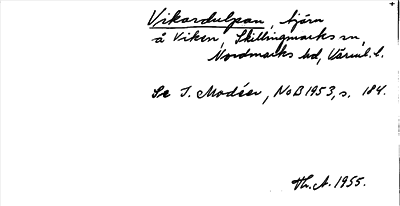 Vikardulpan, tjärn
å Viken, Skillingmarks sn,
Nordmarks hd, Värml. l.
Se I. Modéer, NoB 1953, s. 184.
Th. A. 1955.